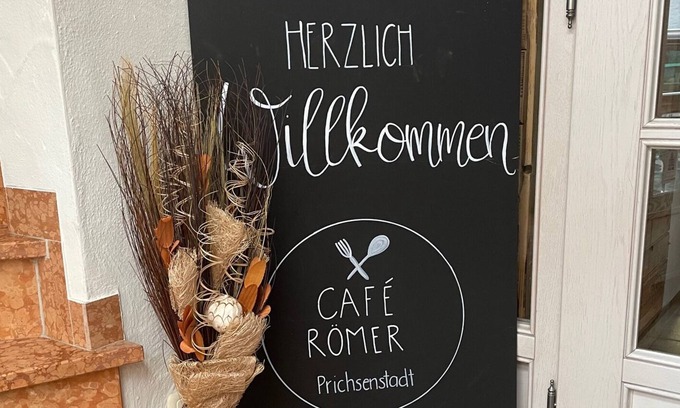 HERZLICH
Willkommen
CAFÉ
RÖMER
Prichsenstadt